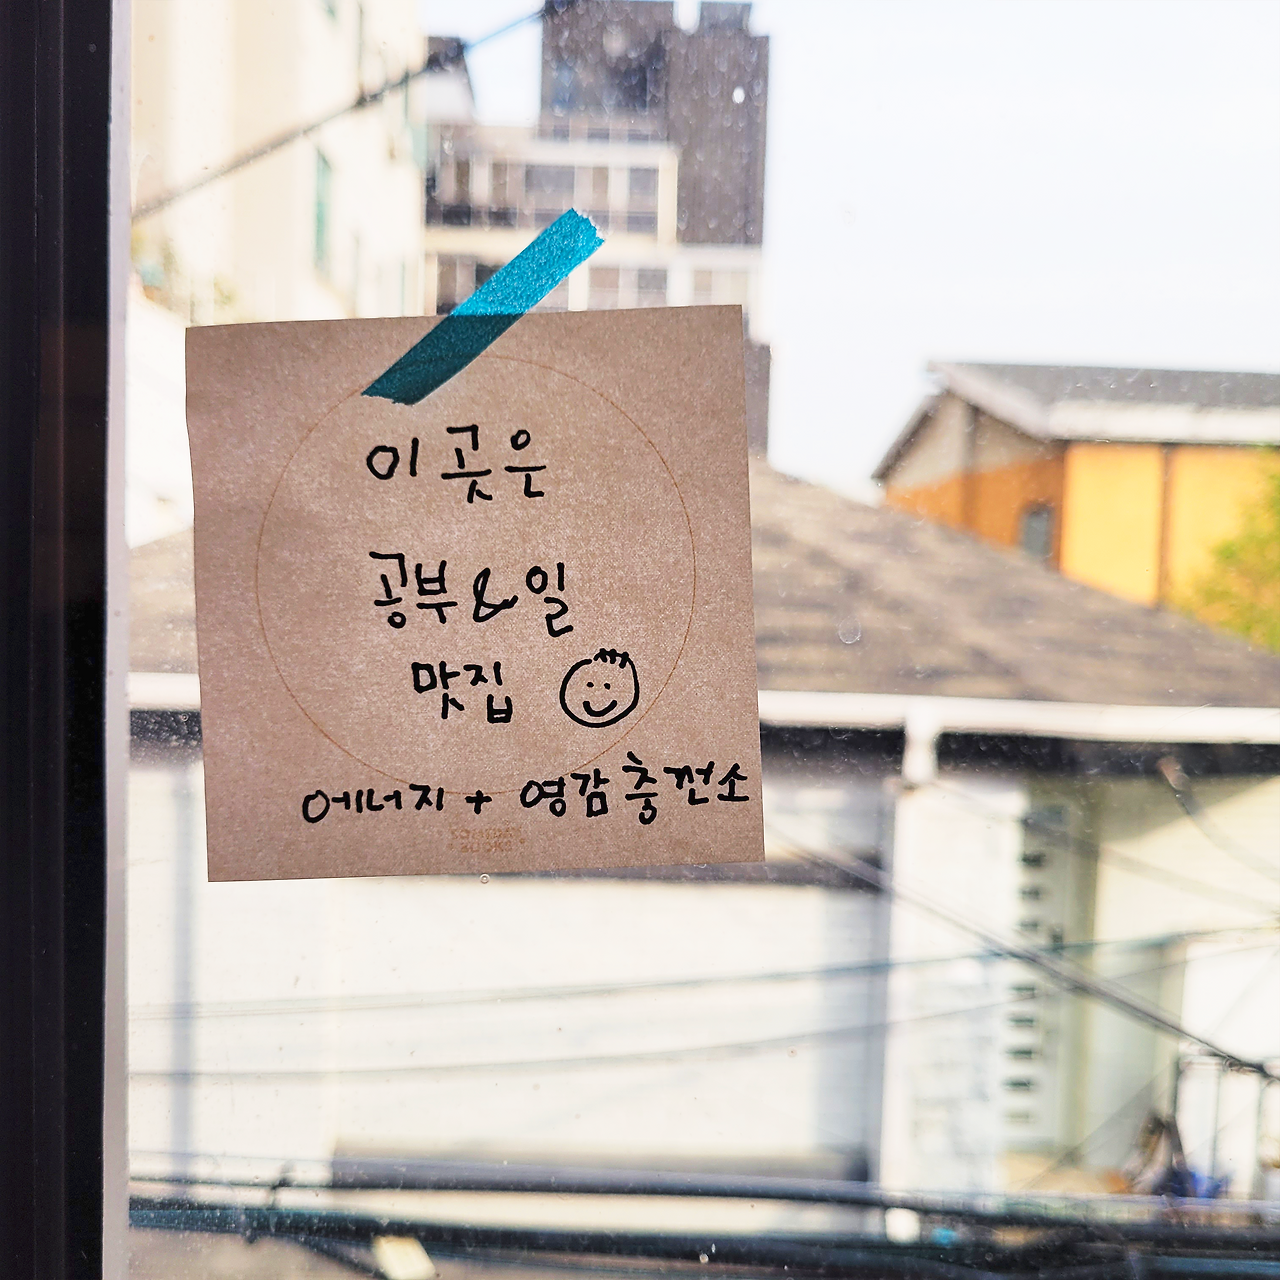 이곳은
공부 & 일
맛집
에너지 + 영감충전소
BOOKS